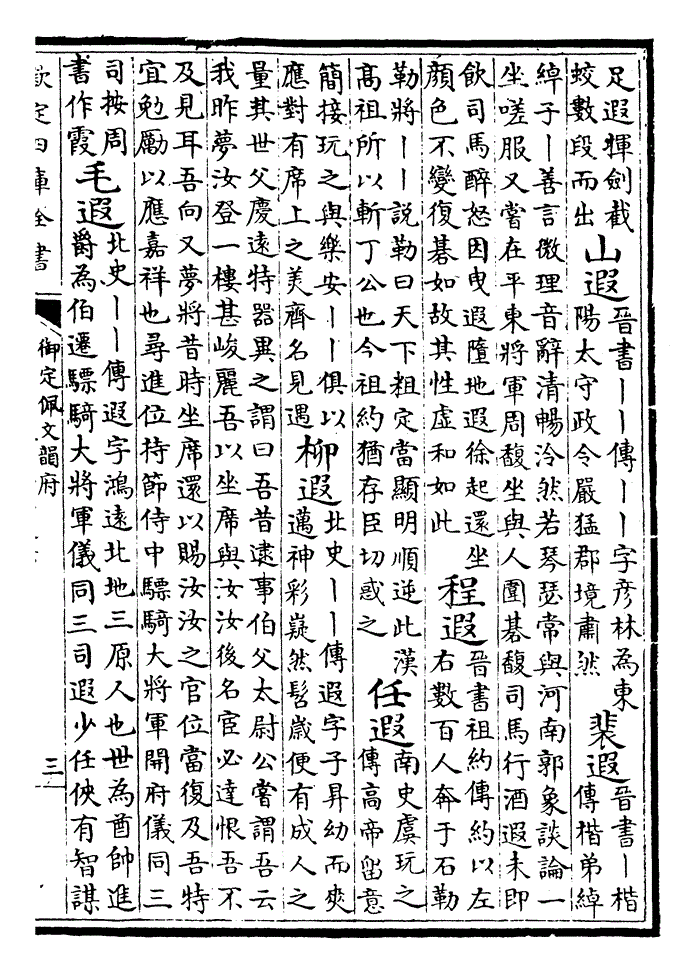 足遐揮劍截
蛟數段而出
山遐
晉書丨丨傳丨丨字彦林為東
陽太守政令嚴猛郡境肅然
裴遐
晉書丨楷
傳楷弟綽
綽子丨善言微理音辭清暢泠然若琴瑟常與河南郭象談論一
坐嗟服又嘗在平東將軍周馥坐與人圍碁馥司馬行酒遐未即
飲司馬醉怒因曳遐墮地遐徐起還坐
顔色不變復碁如故其性虛和如此
程遐
晉書祖約傳約以左
右數百人奔于石勒
勒將丨丨説勒曰天下粗定當顯明順逆此漢
高祖所以斬丁公也今祖約猶存臣切惑之
任遐
南史虞玩之
傳高帝㽞意
簡接玩之與樂安丨丨俱以
應對有席上之美齊名見遇
柳遐
北史丨丨傳遐字子昇幼而爽
邁神彩嶷然髫歲便有成人之
量其世父慶遠特器異之謂曰吾昔逮事伯父太尉公嘗謂吾云
我昨夢汝登一樓甚峻麗吾以坐席與汝汝後名宦必達恨吾不
及見耳吾向又夢將昔時坐席還以賜汝汝之官位當復及吾特
宜勉勵以應嘉祥也尋進位持節侍中驃騎大將軍開府儀同三
司按周
書作霞
毛遐
北史丨丨傳遐字鴻遠北地三原人也世為酋帥進
爵為伯遷驃騎大將軍儀同三司遐少任俠有智謀
欽定四庫全書
御定佩文韻府
三